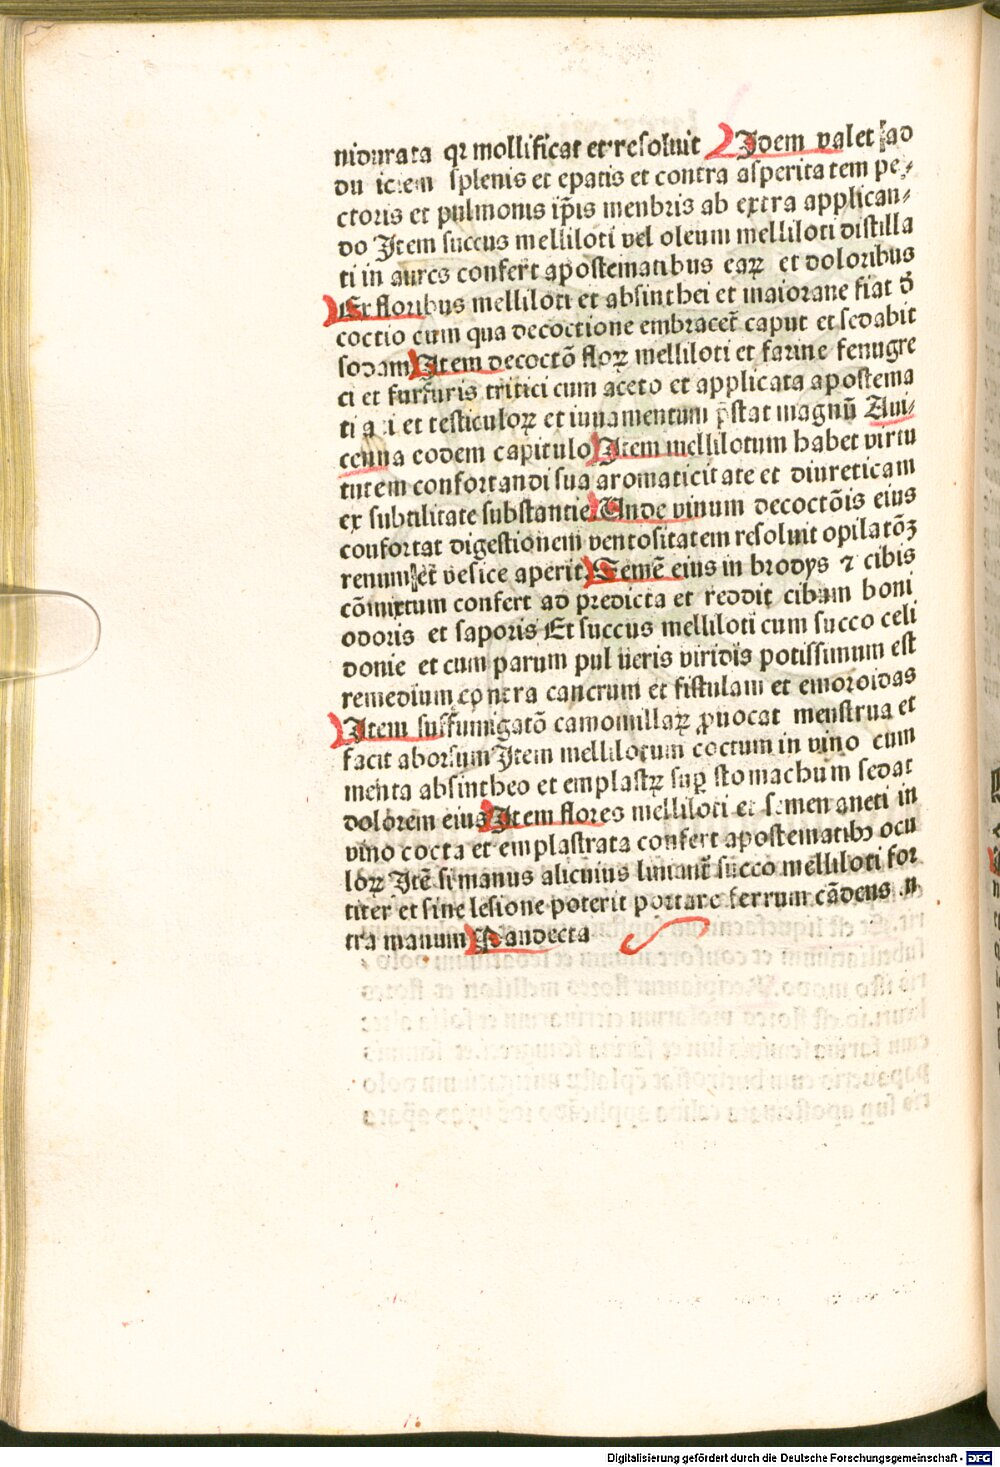 nidurata qꝛ mollificat et resoluit Idem valet ad
du iciem splenis et epatis et contra asperita tem pe⸗
ctoris et pulmonis ip̄is menbris ab extra applican⸗
do Item succus melliloti vel oleum melliloti distilla
ti in aures confert apostematibus eaꝝ et doloribus
Ex floribus melliloti et absinthei et maiorane fiat d̄
coctio cum qua decoctione embracet̄ caput et sedabit
sodam Item decoctō floꝝ melliloti et farine fenugre
ci et furfuris tritici cum aceto et applicata apostema
ti a i et testiculoꝝ et iuuamentum p̄stat magnū Aui⸗
cenna eodem capitulo Item mellilotum habet virtu
tutem confortandi sua aromaticit ate et diureticam
ex subtilitate substantie Unde vinum decoctōis eius
confortat digestionem ventositatem resoluit opilatōꝫ
renum et̄ vesice aperit Semē eius in brodys ⁊ cibis
cōmixtum confert ad predicta et reddit cibum boni
odoris et saporis Et succus melliloti cum succo celi
donie et cum parum pul ueris viridis potissimum est
remedium contra cancrum et fistulam et emoroidas
Item suffumigatō camomillaꝝ ꝓuocat menstrua et
facit aborsum Item mellilotum coctum in vino cum
menta absintheo et emplastꝝ suꝑ stomachum sedat
dolorem eius Item flores melliloti et semen aneti in
vino cocta et emplastrata confert apostematibꝰ ocu
loꝝ Itē si manus alicuius liniant̄ succo melliloti for
titer et sine lesione poterit portare ferrum cādens in
tra manum Pandecta
Digitalisierung gefördert durch die Deutsche Forschungsgemeinschaft - DFG